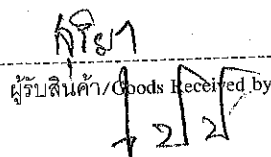 สุริยา
ผู้รับสินค้า/Goods Received by